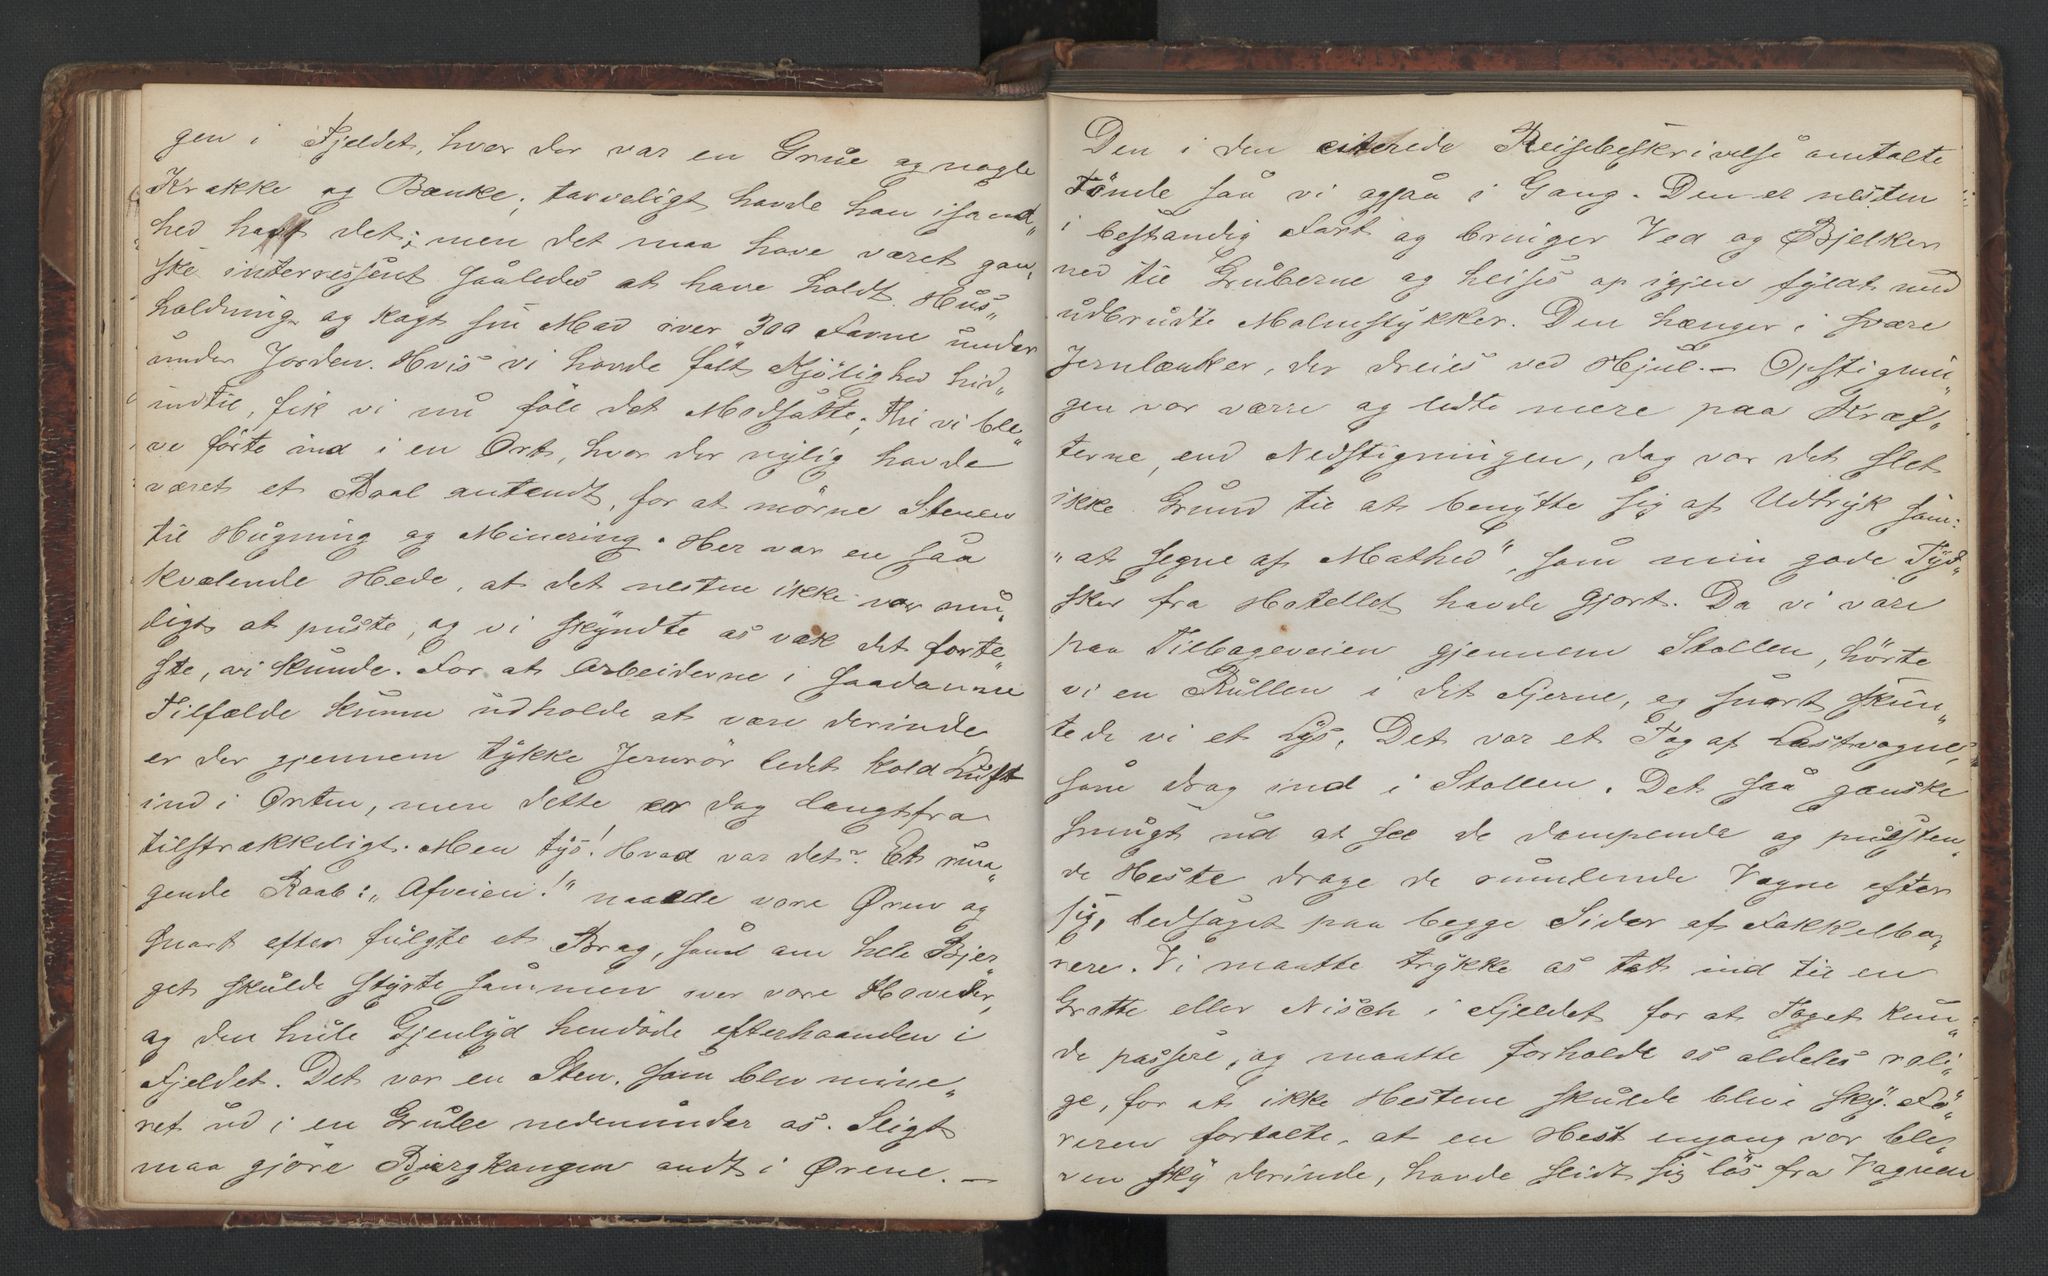 gen i Fjeldet, hvor der var en Grue og nogle
Krakke og Bænke; tarveligt havde han isand„
hed havt det; men det maa have været gan„
ske interressent saaledes at have holdt Hus„
holdning og kogt sin Mad over 300 Favne under
under Jorden. Hvis vi havde følt Kjølighed hid„
indtil, fik vi nu føle det Modsatte; thi vi ble„
ve førte ind i en Ort, hvor der nylig havde
været et Baal antendt, for at mørne Stenen
til Hugning og Minering. Her var en saa
kvælende Hede, at det nesten ikke var mu„
ligt at puste, og vi skyndte os væk det forte„
ste, vi kunde. For at Arbeiderne i saadanne
Tilfælde kunne udholde at være derinde
er der gjennem tykke Jernrör ledet kold Luft
ind i Orten, men dette er dog langtfra
tilstrækkeligt. Men tys! Hvad var det? Et run„
gende Raab: „Afveien!" naaede vore Øren og
snart efter fulgte et Brag, som om hele Bjer„
get skulde styrte sammen over vore Hoveder,
og den hule Gjenlyd hendöde efterhaanden i
Fjeldet. Det var en Sten, som blev mine„
ret ud i en Grube nedenunder os. Sligt
maa gjöre Bjergkongen ondt i Ørene. —
Den i den citerede Reisebeskrivelse omtalte
Tönde saa vi ogsaa i Gang. Den er nesten
i bestandig Fart og bringer Ved og Bjelker
ned til Gruberne og heises op igjen fyldt med
udbrudte Malmstykker. Den hænger i svære
Jernlænker, der dreies ved Hjul. — Opstignin„
gen var værre og ledte mere paa Kræf„
terne, end Nedstigningen, dog var det slet
ikke Grund til at benytte sig af Udtryk som:
„at segne af Mathed", som min gode Tyd„
sker fra Hotellet havde gjort. Da vi vare
paa Tilbageveien gjennem Stollen, hörte
vi en Rullen i det Fjerne, og snart skim„
tede vi et Lys. Det var et Tog af Lastvogne,
som drog ind i Stollen. Det saa ganske
smugt ud at see de dampende og pusten„
de Heste drage de rumlende Vogne efter
sig, ledsaget paa begge Sider af Fakkelbæ„
rere. Vi maatte trykke os tæt ind til en
Grotte eller Nisch i Fjeldet for at Toget kun„
de passere, og maatte forholde os aldeles roli„
ge, for at ikke Hestene skulde blive sky. Fö„
reren fortalte, at en Hest engang var ble„
ven sky derinde, havde slidt sig lös fra Vognen